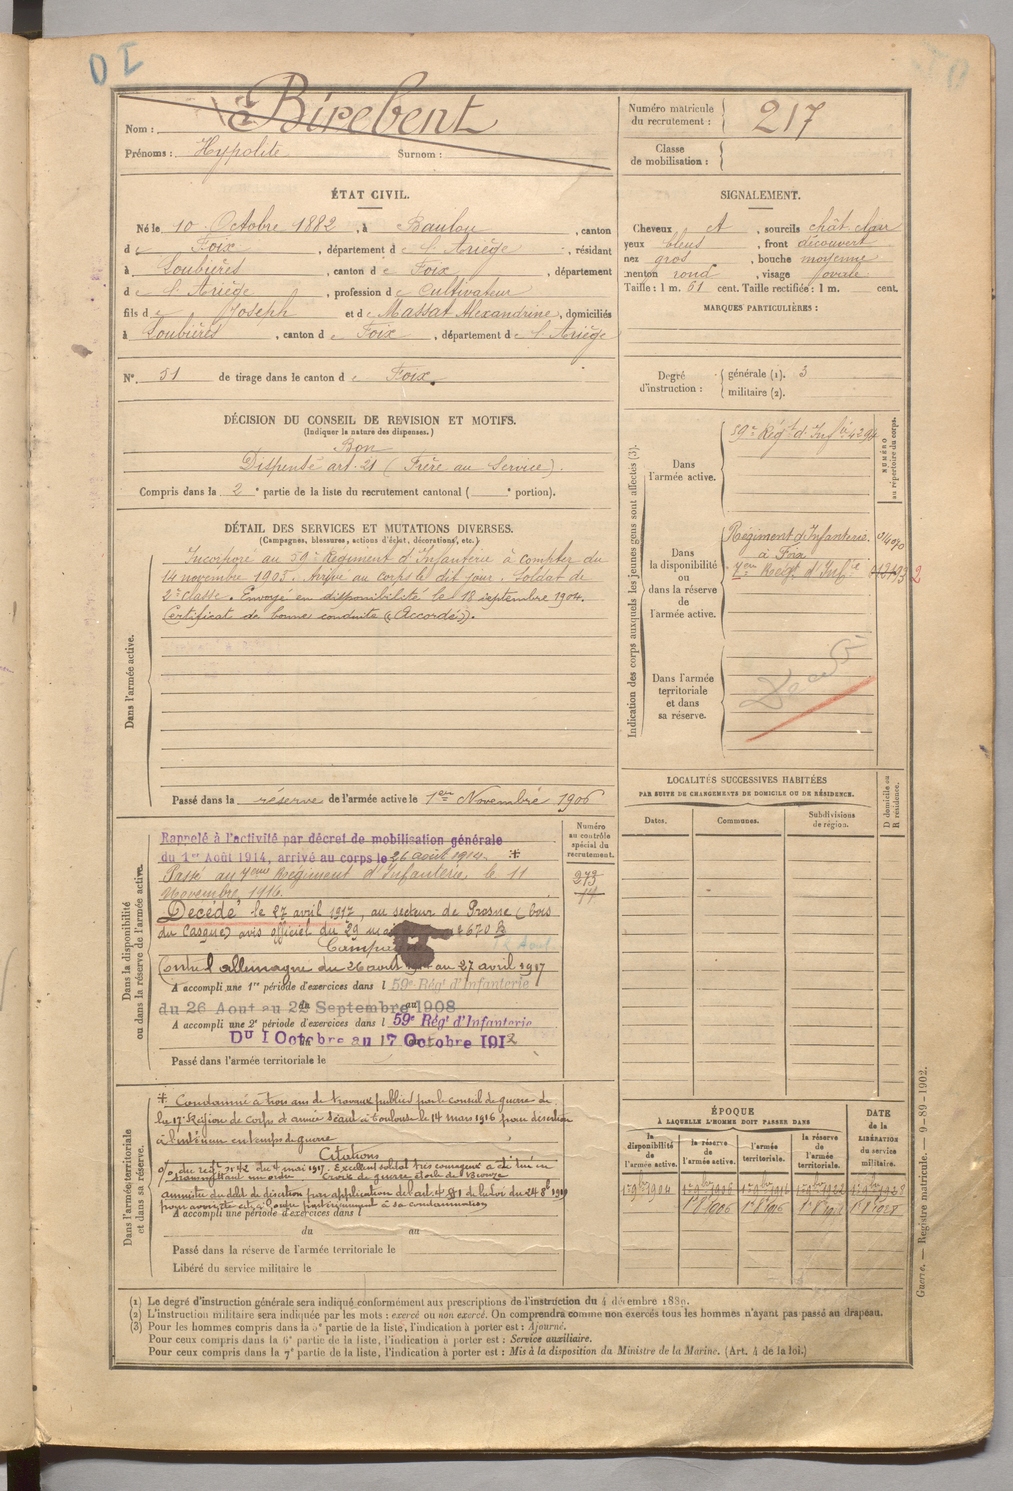 OI
Nom : Birebent
Prénoms : Hypolite Surnom :
Numéro matricule du recrutement : 217
Classe de mobilisation :
ÉTAT CIVIL.
Né le 10 Octobre 1882, à Baulou, canton
de Foix, département de l'Ariège, résidant
à Loubières, canton de Foix, département
de l'Ariège, profession de Cultivateur
fils de Joseph et de Massat Alexandrine, domiciliés
à Loubières, canton de Foix, département de l'Ariège
N° 51 de tirage dans le canton de Foix.
SIGNALEMENT.
Cheveux et, sourcils chât. clair
yeux bleus, front découvert
nez gros, bouche moyenne
menton rond, visage ovale
Taille : 1 m. 61 cent. Taille rectifiée : 1 m. cent.
MARQUES PARTICULIÈRES :
Degré d'instruction : générale (1). 3
militaire (2).
DÉCISION DU CONSEIL DE REVISION ET MOTIFS.
(Indiquer la nature des dispenses.)
Bon
Dispensé art. 21 (Frère au Service).
Compris dans la 2e partie de la liste du recrutement cantonal ( e portion).
DÉTAIL DES SERVICES ET MUTATIONS DIVERSES.
(Campagnes, blessures, actions d'éclat, décorations, etc.)
Dans l'armée active.
Incorporé au 59e Régiment d'Infanterie à compter du
14 novembre 1903. Arrivé au corps le dit jour. Soldat de
2e classe. Envoyé en disponibilité le 18 septembre 1904.
Certificat de bonne conduite "Accordé".
Passé dans la réserve de l'armée active le 1er Novembre 1906
Indication des corps auxquels les jeunes gens sont affectés (3).
NUMÉRO au répertoire du corps.
Dans l'armée active.
59e Régt d'Infie 4294
Dans la disponibilité ou dans la réserve de l'armée active.
Régiment d'Infanterie.
à Foix
7em Régt d'Infie
Dans l'armée territoriale et dans sa réserve.
Décédé
LOCALITÉS SUCCESSIVES HABITÉES
PAR SUITE DE CHANGEMENTS DE DOMICILE OU DE RÉSIDENCE.
D domicile ou R résidence.
Dates. Communes. Subdivisions de région.
Dans la disponibilité ou dans la réserve de l'armée active.
Numéro au contrôle spécial du recrutement.
Rappelé à l'activité par décret de mobilisation générale
du 1er Août 1914, arrivé au corps le 26 août 1914. *
Passé au 7eme Régiment d'Infanterie le 11
Novembre 1916.
273
14
Décédé le 27 avril 1917, au secteur de Prosne (bois
du Casque) avis officiel du 29 2670
Campagne
Contre l'allemagne du 26 août au 27 avril 1917
A accompli une 1re période d'exercices dans l 59e Régt d'Infanterie
du 26 Aout au 22 Septembre 1908
A accompli une 2e période d'exercices dans l 59e Régt d'Infanterie
DU 1 Octobre au 17 Octobre 1912
Passé dans l'armée territoriale le
Dans l'armée territoriale et dans sa réserve.
* Condamné à trois ans de travaux publics par le conseil de guerre de
la 17e Région de Corps d'armée séant à Toulouse le 14 mars 1916 pour désertion
à l'intérieur en temps de guerre
Citations
o/o du regt n° 42 du 4 mai 1917. Excellent soldat très courageux a été tué en
Croix de guerre étoile de Bronze
amnistié du délit de désertion par application de l'art. 4 de la loi du 24 8bre 1919
pour avoir été cité à l'ordre postérieurement à sa condamnation
A accompli une période d'exercices dans l
du au
Passé dans la réserve de l'armée territoriale le
Libéré du service militaire le
ÉPOQUE
À LAQUELLE L'HOMME DOIT PASSER DANS
la disponibilité de l'armée active. la réserve de l'armée active. l'armée territoriale. la réserve de l'armée territoriale.
DATE de la LIBÉRATION du service militaire.
1er 9bre 1904 1er 9bre 1906 1er 9bre 1916
1er 8 1906 1er 8 1916
(1) Le degré d'instruction générale sera indiqué conformément aux prescriptions de l'instruction du 4 décembre 1889.
(2) L'instruction militaire sera indiquée par les mots : exercé ou non exercé. On comprendra comme non exercés tous les hommes n'ayant pas passé au drapeau.
(3) Pour les hommes compris dans la 5e partie de la liste, l'indication à porter est : Ajourné.
Pour ceux compris dans la 6e partie de la liste, l'indication à porter est : Service auxiliaire.
Pour ceux compris dans la 7e partie de la liste, l'indication à porter est : Mis à la disposition du Ministre de la Marine. (Art. 4 de la loi.)
Guerre. — Registre matricule. — 9-89-1902.